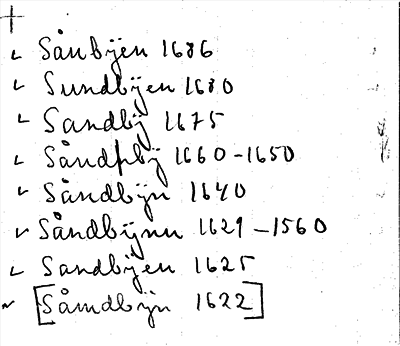 Sånbÿen 1686
Sundbÿen 1680
Sandbÿ 1675
Såndpbÿ 1660-1650
Såndbÿn 1640
Såndbÿnn 1629-1560
Sandbÿen 1625
[Såmdbÿn 1622]